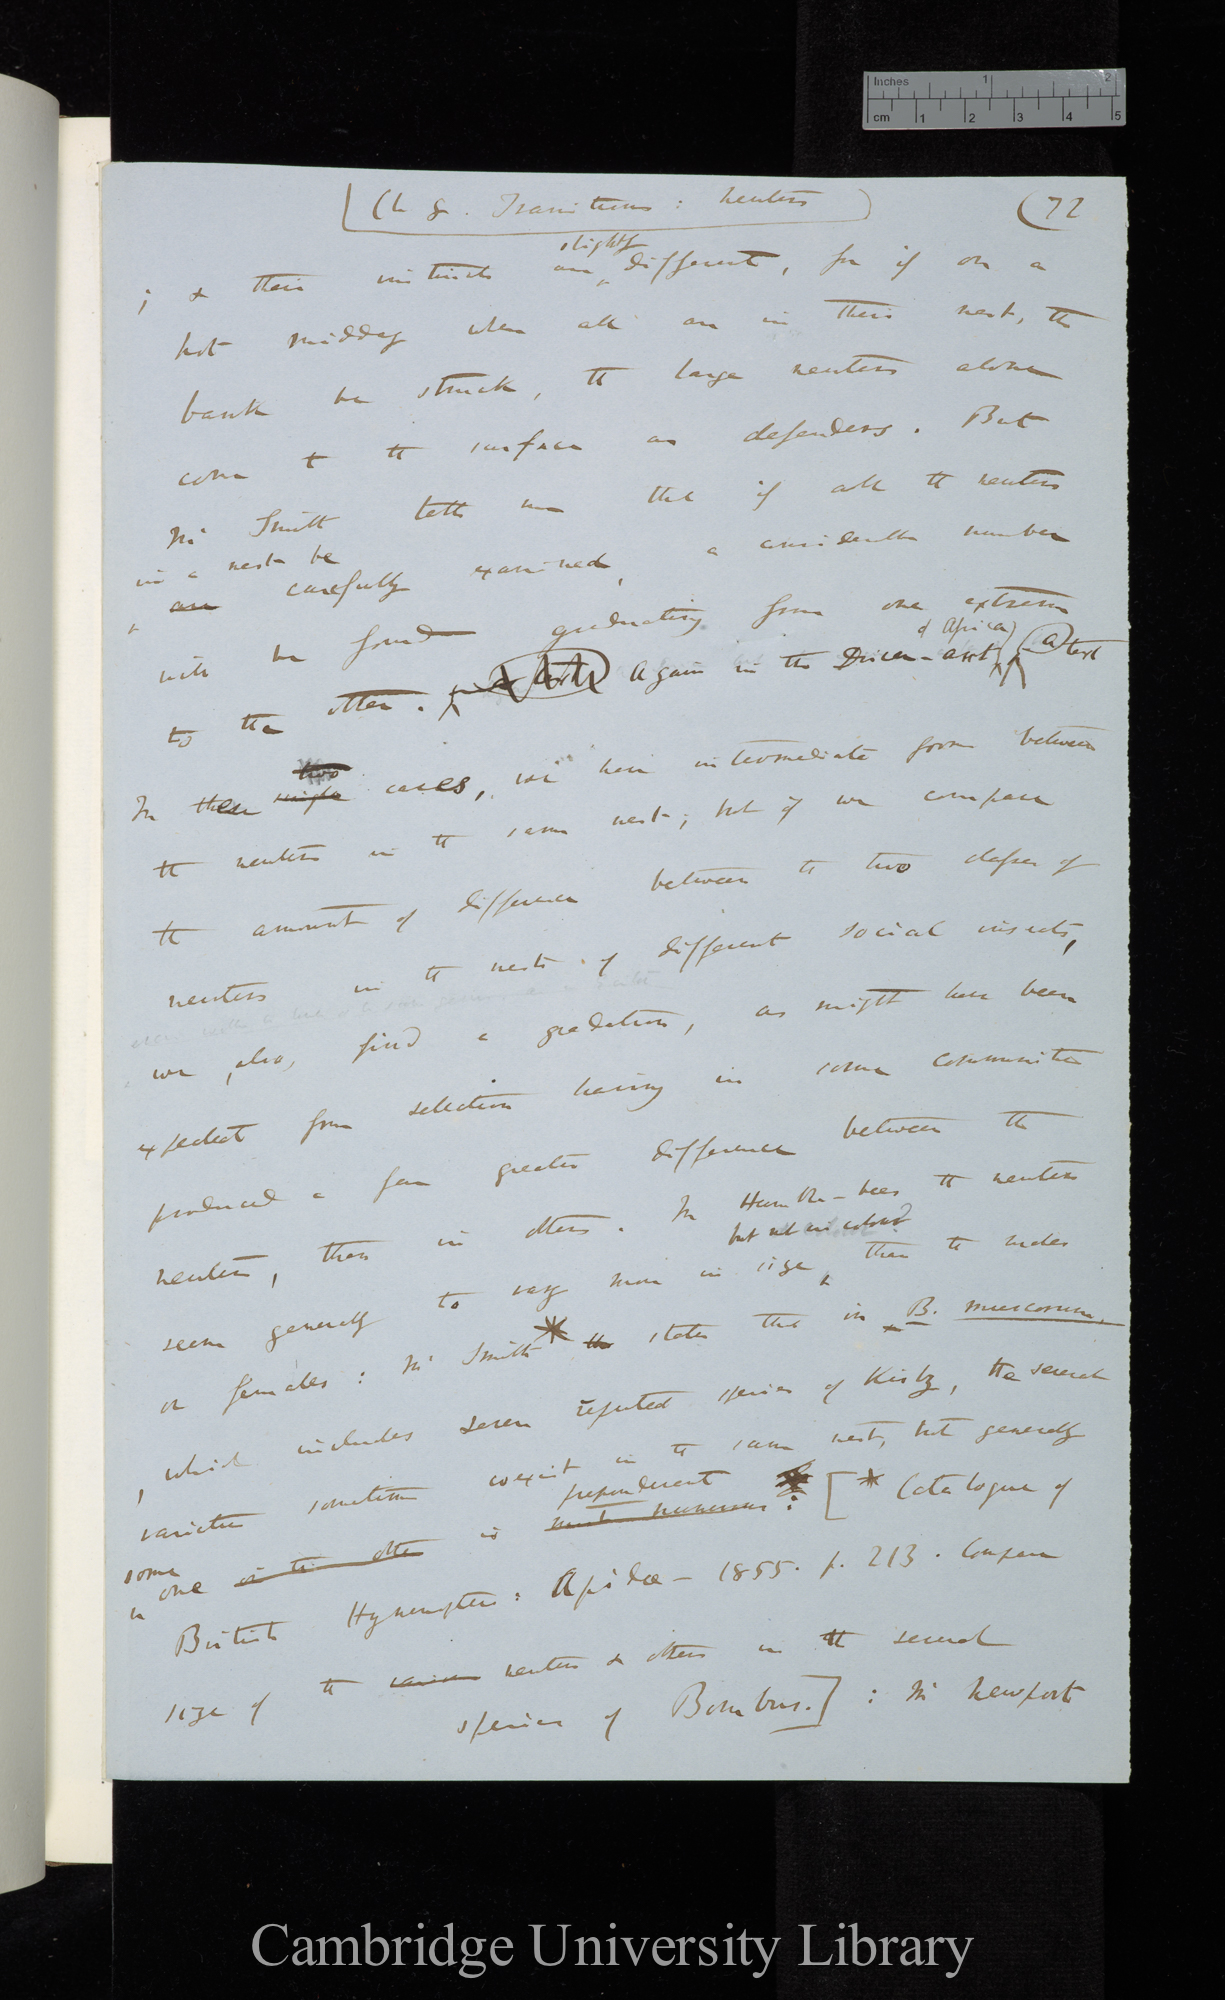 Inches 1 2
cm 1 2 3 4 5
(Ch 8. Transitions: Neuters
(72
slightly
; & their instincts are different, for if on a
hot midday when all are in their nest, the
bank be struck, the large neuters alone
come to the surface as defenders. But
Mr Smith tells me that if all the neuters
in a nest be
are carefully examined, a considerable number
will be found graduating from one extreme
of Africa)
to the other. Again in the Driver-ant (a) text
two
In these single cases, we have intermediate forms between
the neuters in the same nest; but if we compare
the amount of difference between the two classes of
neuters in the nests of different social insects,
we, also, find a gradation, as might have been
expected from selection having in some communities
produced a far greater difference between the
neuters, than in others. In Humble-bees the neuters
but not in colour?
seem generally to vary more in size, than the males
or females: Mr Smith* states that in B. muscorum.
, which includes seven reputed species of Kirby, the several
varieties sometimes coexist in the same nest, but generally
preponderant
some
one in the other is most numerous: [* Catalogue of
British Hymenoptera: Apidæ— 1855. p. 213. Compare
size of the neuters & others in the several
species of Bombus.] : Mr Newport
Cambridge University Library